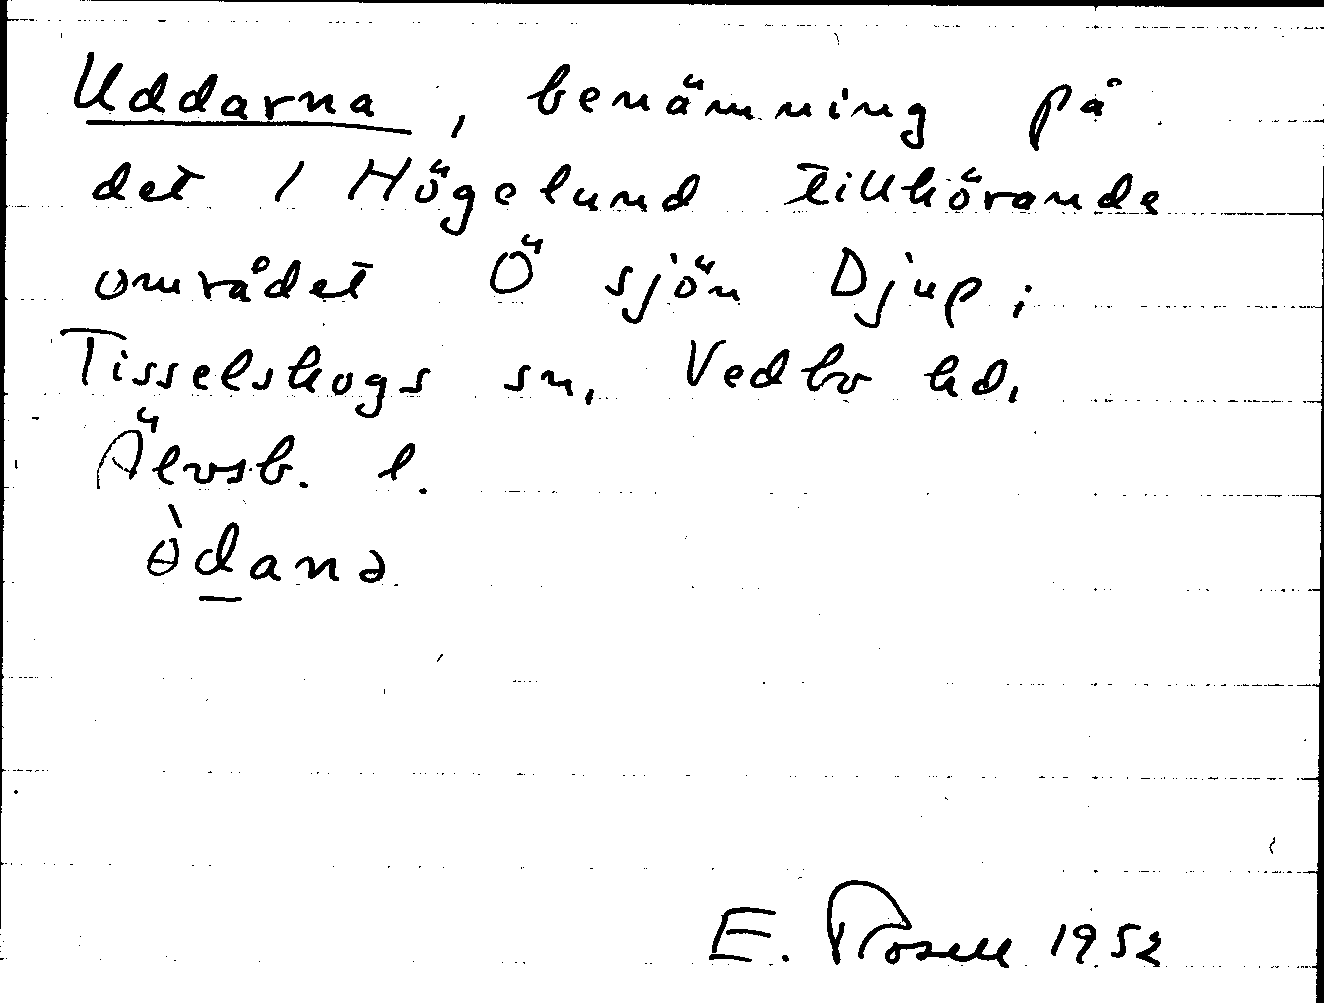 Uddarna, benämning på
det / Högelund tillhörande
området Ö sjön Djup i
Tisselskogs sn, Vedbo hd,
Älvsb. l.
ɵ̀danə
E. Rosell 1952